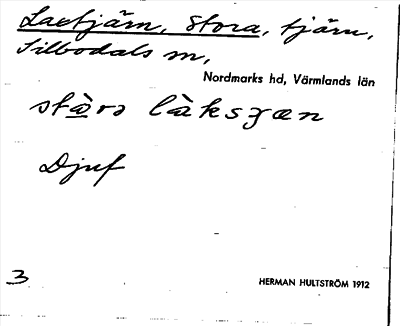 Laxtjärn, Stora, tjärn,
Silbodals sn,
Nordmarks hd, Värmlands län
stɑ̀rə lɑ̀ksʒæn
Djuf
3 HERMAN HULTSTRÖM 1912